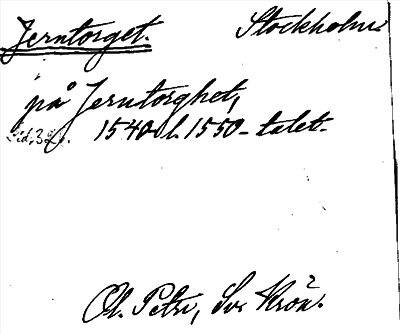 Jerntorget. Stockholm
på Jerntorghet,
Sid. 326. 1540- l. 1550-talet.
Ol. Petri, Sv. Krön.